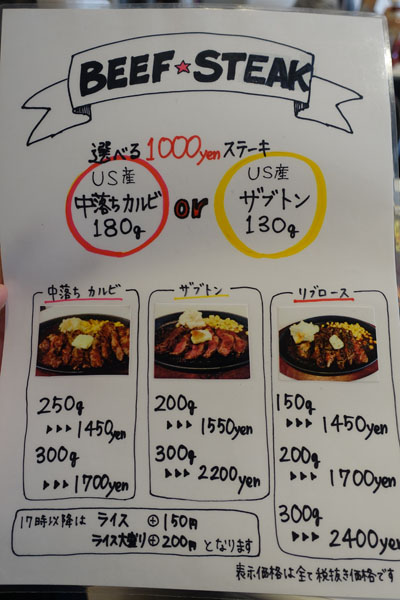 BEEF★STEAK
選べる1000yenステーキ
US産
中落ちカルビ
180g
or
US産
ザブトン
130g
中落ち カルビ
250g
▸▸▸ 1450yen
300g
▸▸▸ 1700yen
ザブトン
200g
▸▸▸ 1550yen
300g
▸▸▸ 2200yen
リブロース
150g
▸▸▸ 1450yen
200g
▸▸▸ 1700yen
300g
▸▸▸ 2400yen
17時以降は ライス ⊕150円
ライス大盛り⊕200円 となります
表示価格は全て税抜き価格です